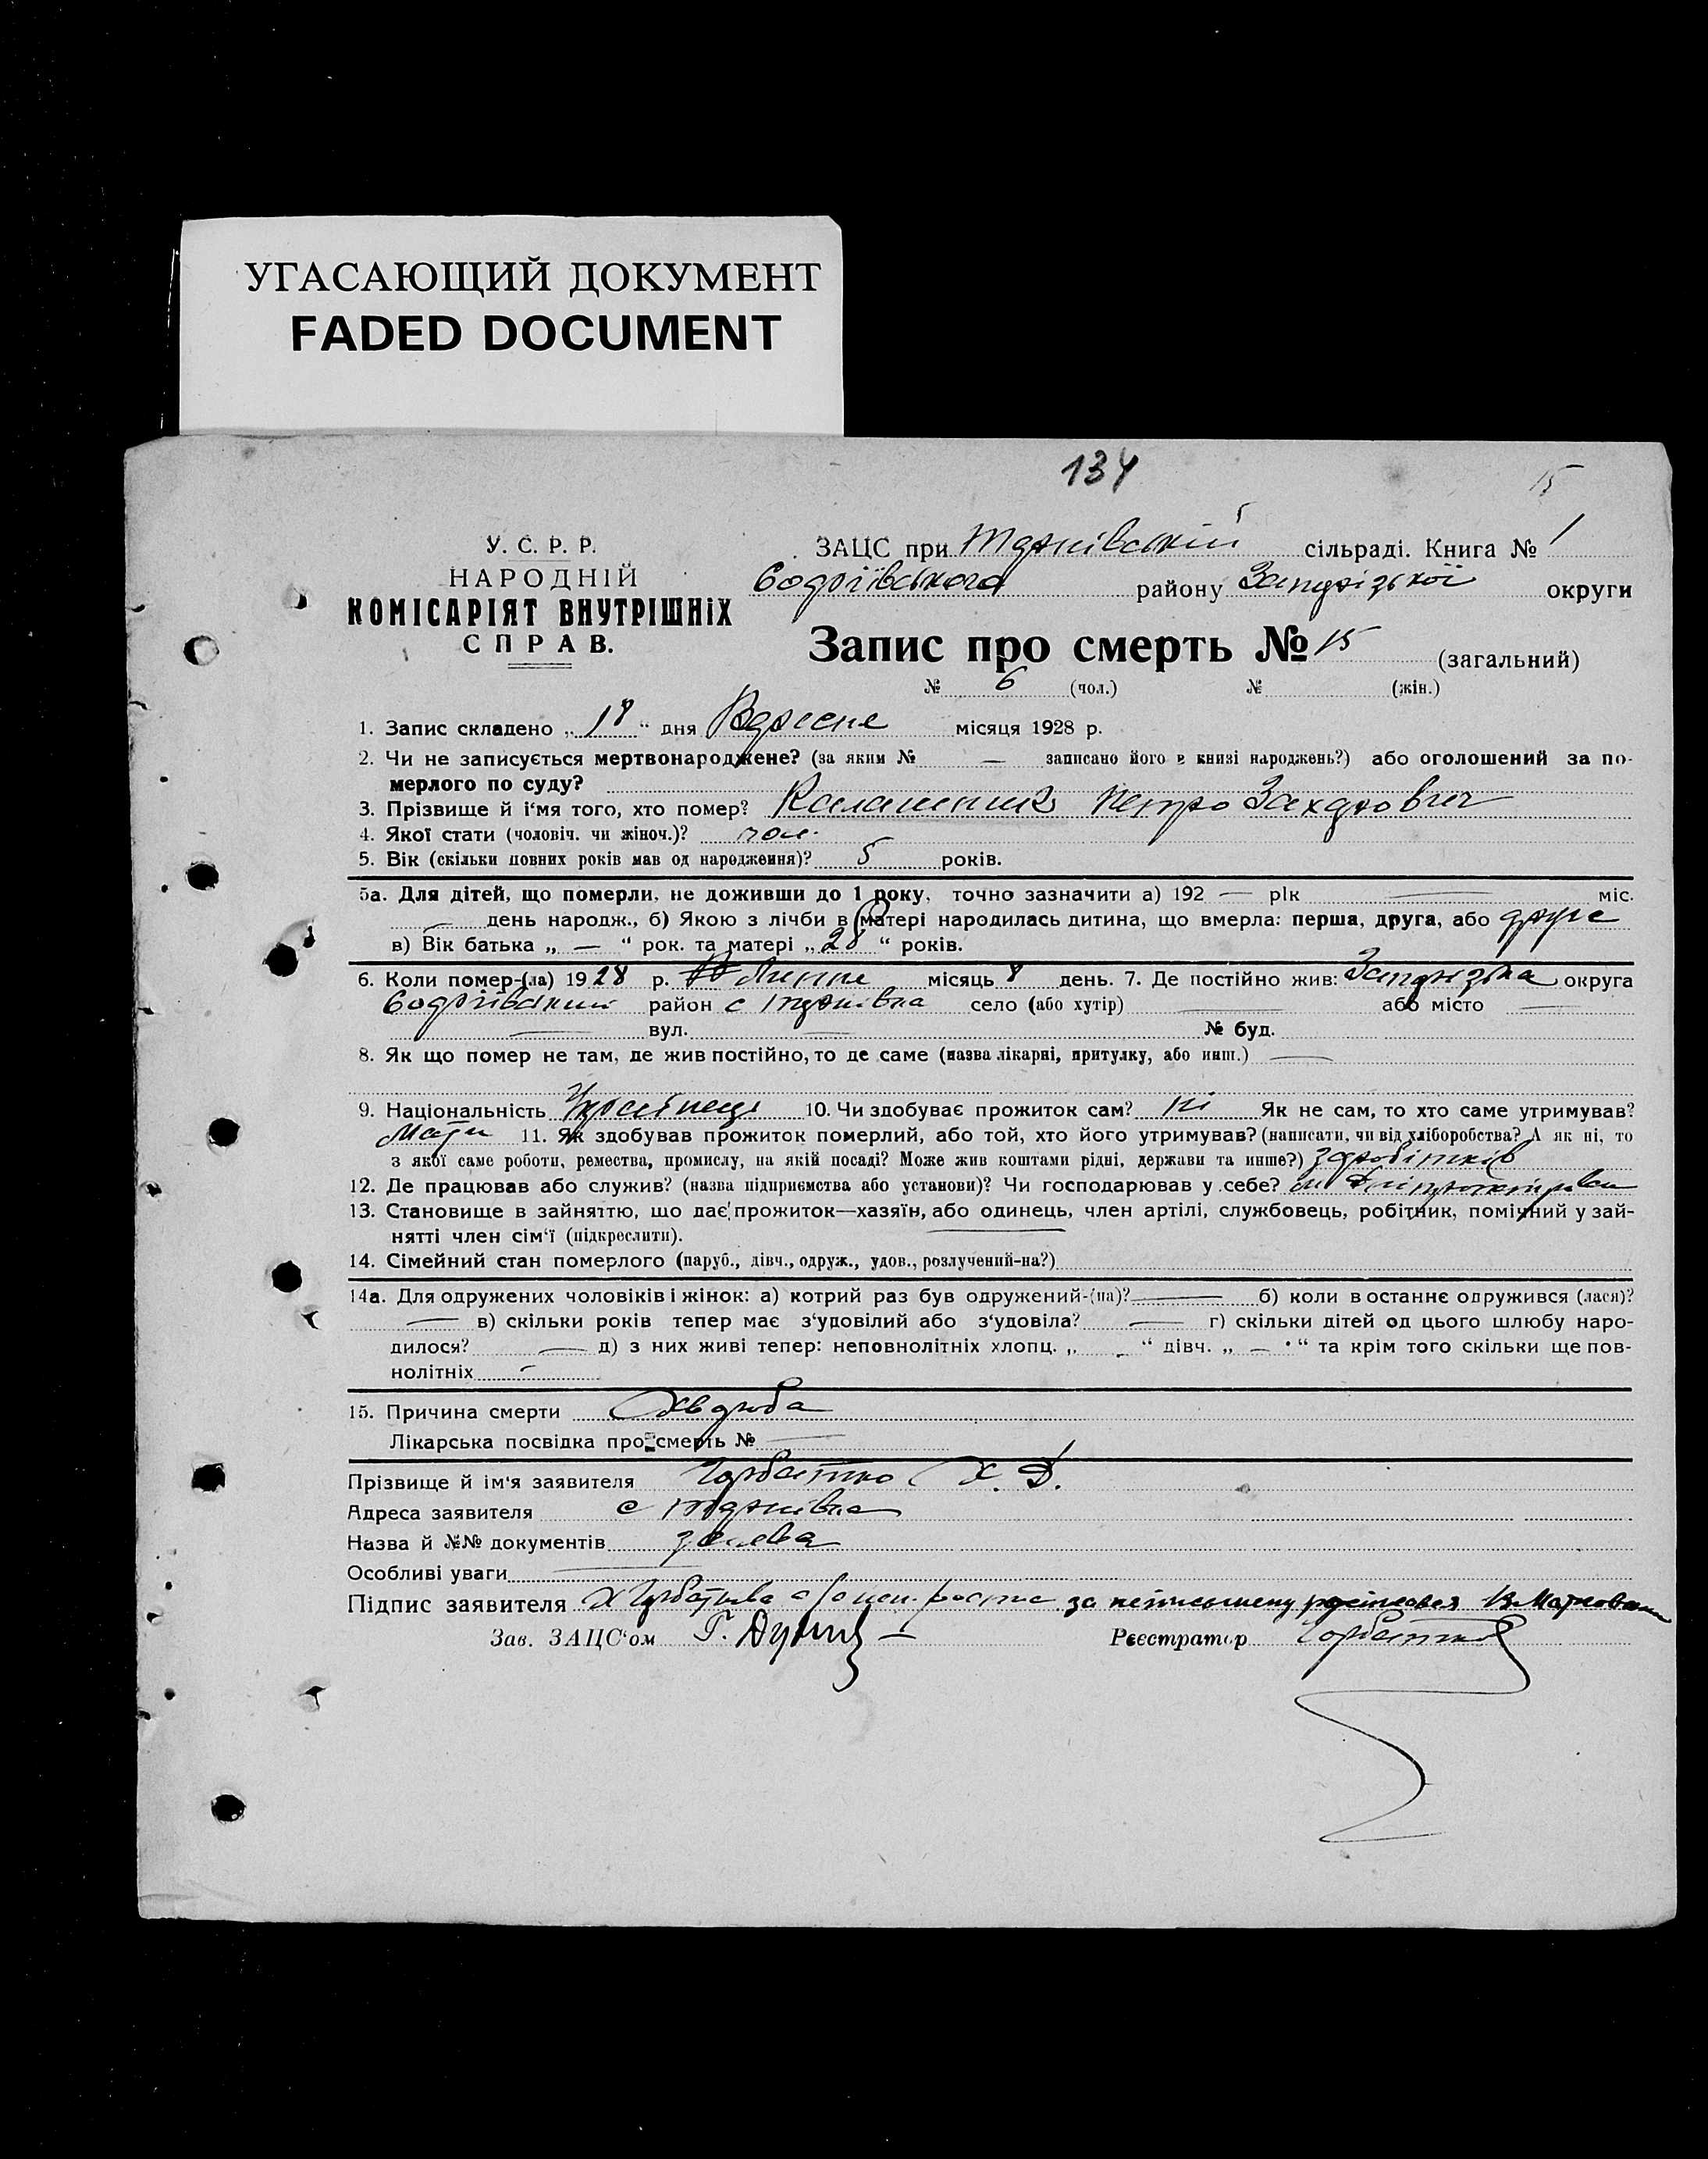 УГАСАЮЩИЙ ДОКУМЕНТ
FADED DOCUMENT
134
15
У. С. Р. Р.
НАРОДНІЙ
КОМІСАРІЯТ ВНУТРІШНІХ
СПРАВ.
ЗАЦС при сільраді. Книга № 1
району Запорізької округи
Запис про смерть № 15 (загальний)
№ 6 (чол.) № (жін.)
1. Запис складено „ 18 “ дня Вересня місяця 1928 р.
2. Чи не записується мертвонароджене? (за яким № — записано його в книзі народжень?) або оголошений за по-
мерлого по суду?
3. Прізвище й ім'я того, хто помер? Калашник Петро Захарович
4. Якої стати (чоловіч. чи жіноч.)? чол.
5. Вік (скільки повних років мав од народження)? 5 років.
5а. Для дітей, що померли, не доживши до 1 року, точно зазначити а) 192 — рік — міс.
— день народж., б) Якою з лічби в матері народилась дитина, що вмерла: перша, друга, або друге
в) Вік батька „ — “ рок. та матері „ 28 “ років.
6. Коли помер-(ла) 1928 р. Липня місяць 8 день. 7. Де постійно жив: Запорізька округа
район с село (або хутір) — або місто —
— вул. — № буд.
8. Як що помер не там, де жив постійно, то де саме (назва лікарні, притулку, або инш.) —
9. Національність Українець 10. Чи здобуває прожиток сам? ні Як не сам, то хто саме утримував?
Мати 11. Як здобував прожиток померлий, або той, хто його утримував? (написати, чи від хліборобства? А як ні, то
з якої саме роботи, ремества, промислу, на якій посаді? Може жив коштами рідні, держави та инше?) заробітків
12. Де працював або служив? (назва підприємства або установи)? Чи господарював у себе?
13. Становище в зайняттю, що дає прожиток—хазяїн, або одинець, член артілі, службовець, робітник, помічний у зай-
нятті член сім'ї (підкреслити). —
14. Сімейний стан померлого (паруб., дівч., одруж., удов., розлучений-на?)
14а. Для одружених чоловіків і жінок: а) котрий раз був одружений-(на)? — б) коли в останнє одружився (лася)?
— в) скільки років тепер має з'удовілий або з'удовіла? — г) скільки дітей од цього шлюбу наро-
дилося? — д) з них живі тепер: неповнолітніх хлопц. „ — “ дівч. „ — “ та крім того скільки ще пов-
нолітніх —
15. Причина смерти Хвороба
Лікарська посвідка про смерть № —
Прізвище й ім'я заявителя Горбатко Х. Д.
Адреса заявителя с
Назва й №№ документів заява
Особливі уваги —
Підпис заявителя за неписьмену росписався
Зав. ЗАЦС'ом Г.
Реєстратор Горбатко